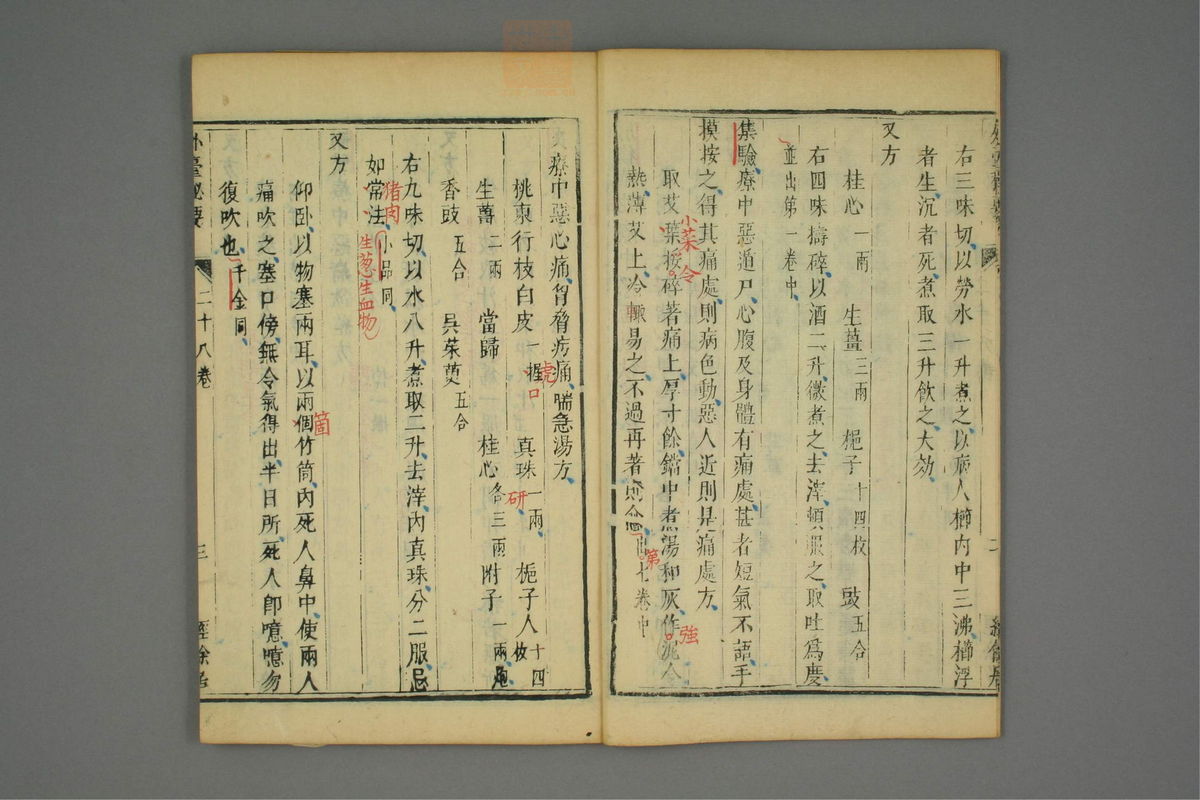 右三味切以勞水一升煮之以病人櫛內中三沸櫛浮
者生沉者死煮取三升飲之大効
又方
桂心一兩 生薑三兩 梔子十四枚 豉五合
右四味擣碎以酒二升微煮之去滓頓服之取吐爲度
並出第一卷中
集驗療中惡遁尸心腹及身體有痛處甚者短氣不語手
摸按之得其痛處則病色動惡人近則是痛處方
取艾葉挼碎著痛上厚寸餘鐺中煮湯和灰作泥令
熱薄艾上冷輒易之不過再著則
卷中
小菜 令
強
第
又療中惡心痛胷脅疞痛喘急湯方
桃東行枝白皮一握 真珠一兩 梔子人十四枚
生薑二兩 當歸 桂心各三兩 附子一兩炮
香豉五合 吳茱萸五合
右九味切以水八升煮取二升去滓內真珠分二服忌
如常法小品同
虎口
研
猪肉
生葱生血物
又方
仰臥以物塞兩耳以兩個竹筒內死人鼻中使兩人
痛吹之塞口傍無令氣得出半日所死人卽噫噫勿
復吹也千金同
箇
二十八卷
三
經餘居